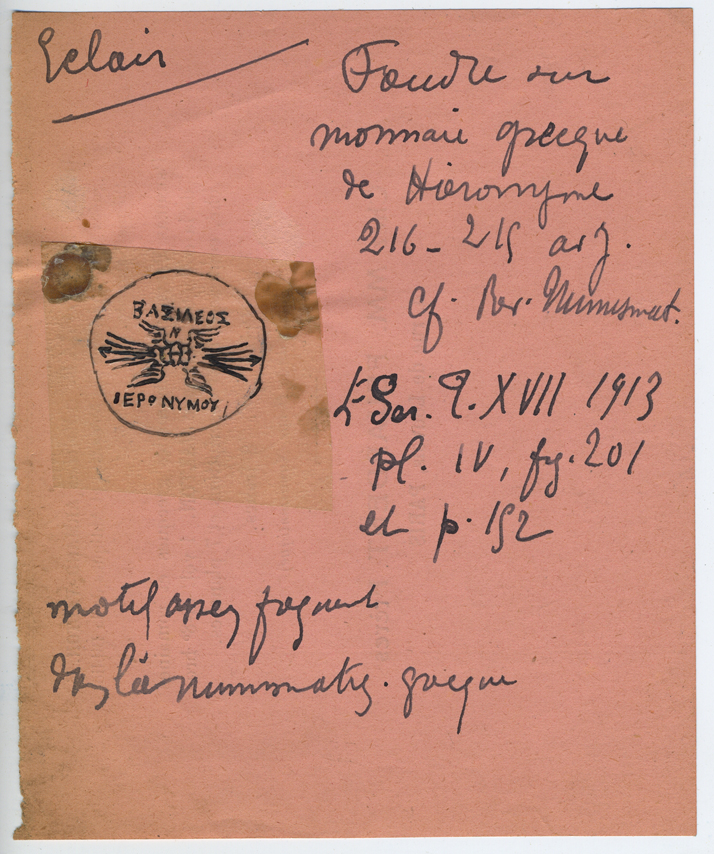 Eclair
Foudre sur
monnaie grecque
de Hieronyme
216-215 arg.
cf. Rev. Numismat.
4e Ser. T. XVII 1913
pl. IV, fig. 201
et p. 152
ΒΑΣΙΛΕΟΣ
N
ΙΕΡΩΝΥΜΟΥ
motif assez fréquent
dans la numismatiq. grecque